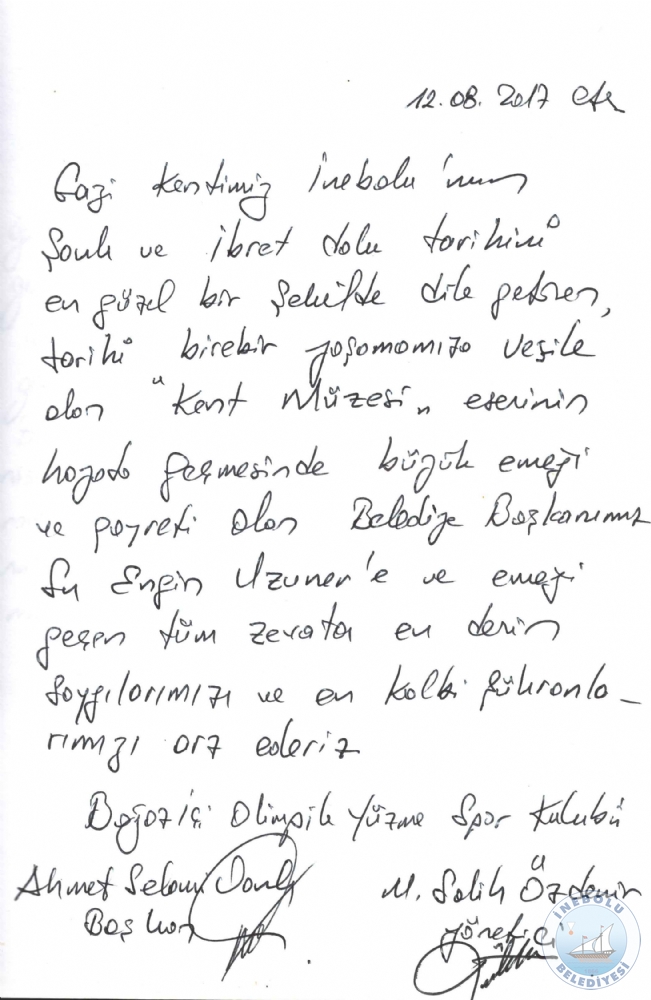 12.08.2017 Cts
Gazi Kentimiz İnebolu'nun
Şanlı ve ibret dolu tarihini
en güzel bir şekilde dile getiren,
tarihi birebir yaşamamıza vesile
olan "Kent Müzesi" eserinin
hayata geçmesinde büyük emeği
ve gayreti olan Belediye Başkanımız
Sn Engin Uzuner'e ve emeği
geçen tüm zevata en derin
saygılarımızı ve en kalbi şükranla-
rımızı arz ederiz
Boğaziçi Olimpik Yüzme Spor Kulubü
Ahmet Selami M. Salih Özdemir
Başkan Yönetici
İNEBOLU
BELEDİYESİ